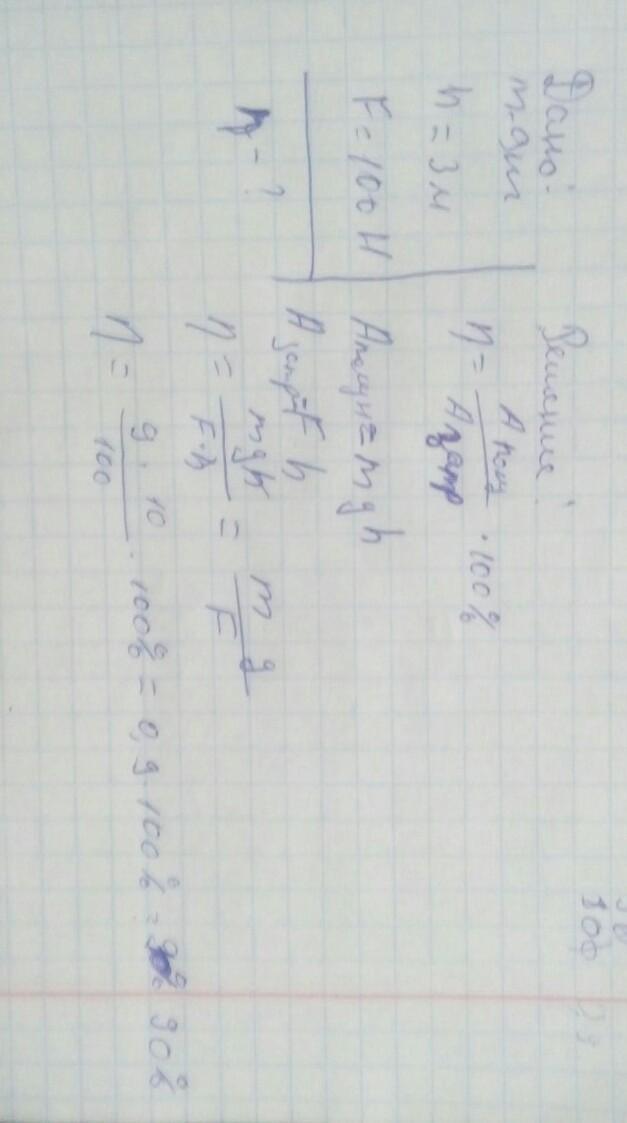 Дано:
m=9кг
h = 3 м
F = 100 Н
η - ?
Решение:
η = Aполз / Aзатр · 100%
Aполезн = mgh
Aзатр = Fh
η = mgh / F·h = mg / F
η = 9 · 10 / 100 · 100% = 0,9 · 100% = 90%
100